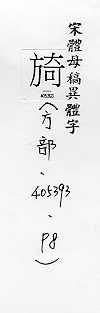 宋體母稿異體字
旑
405393
(方部.405393.P8)